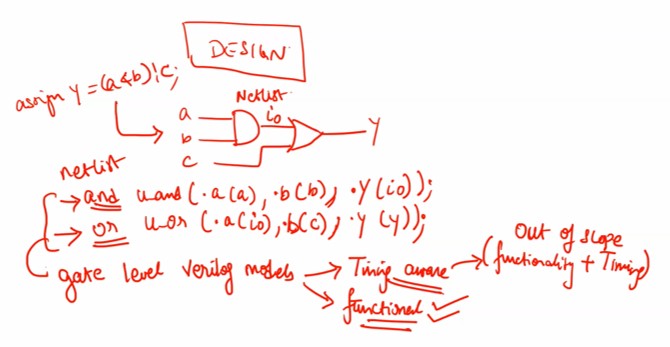 DESIGN
assign Y = (a&b)|C;
Netlist
a
io
b
Y
c
netlist
and uand (.a(a), .b(b), .Y(io));
or uor (.a(io), .b(c), .Y(y));
gate level verilog models → Timing aware → (functionality + Timing)
Out of slope
functional